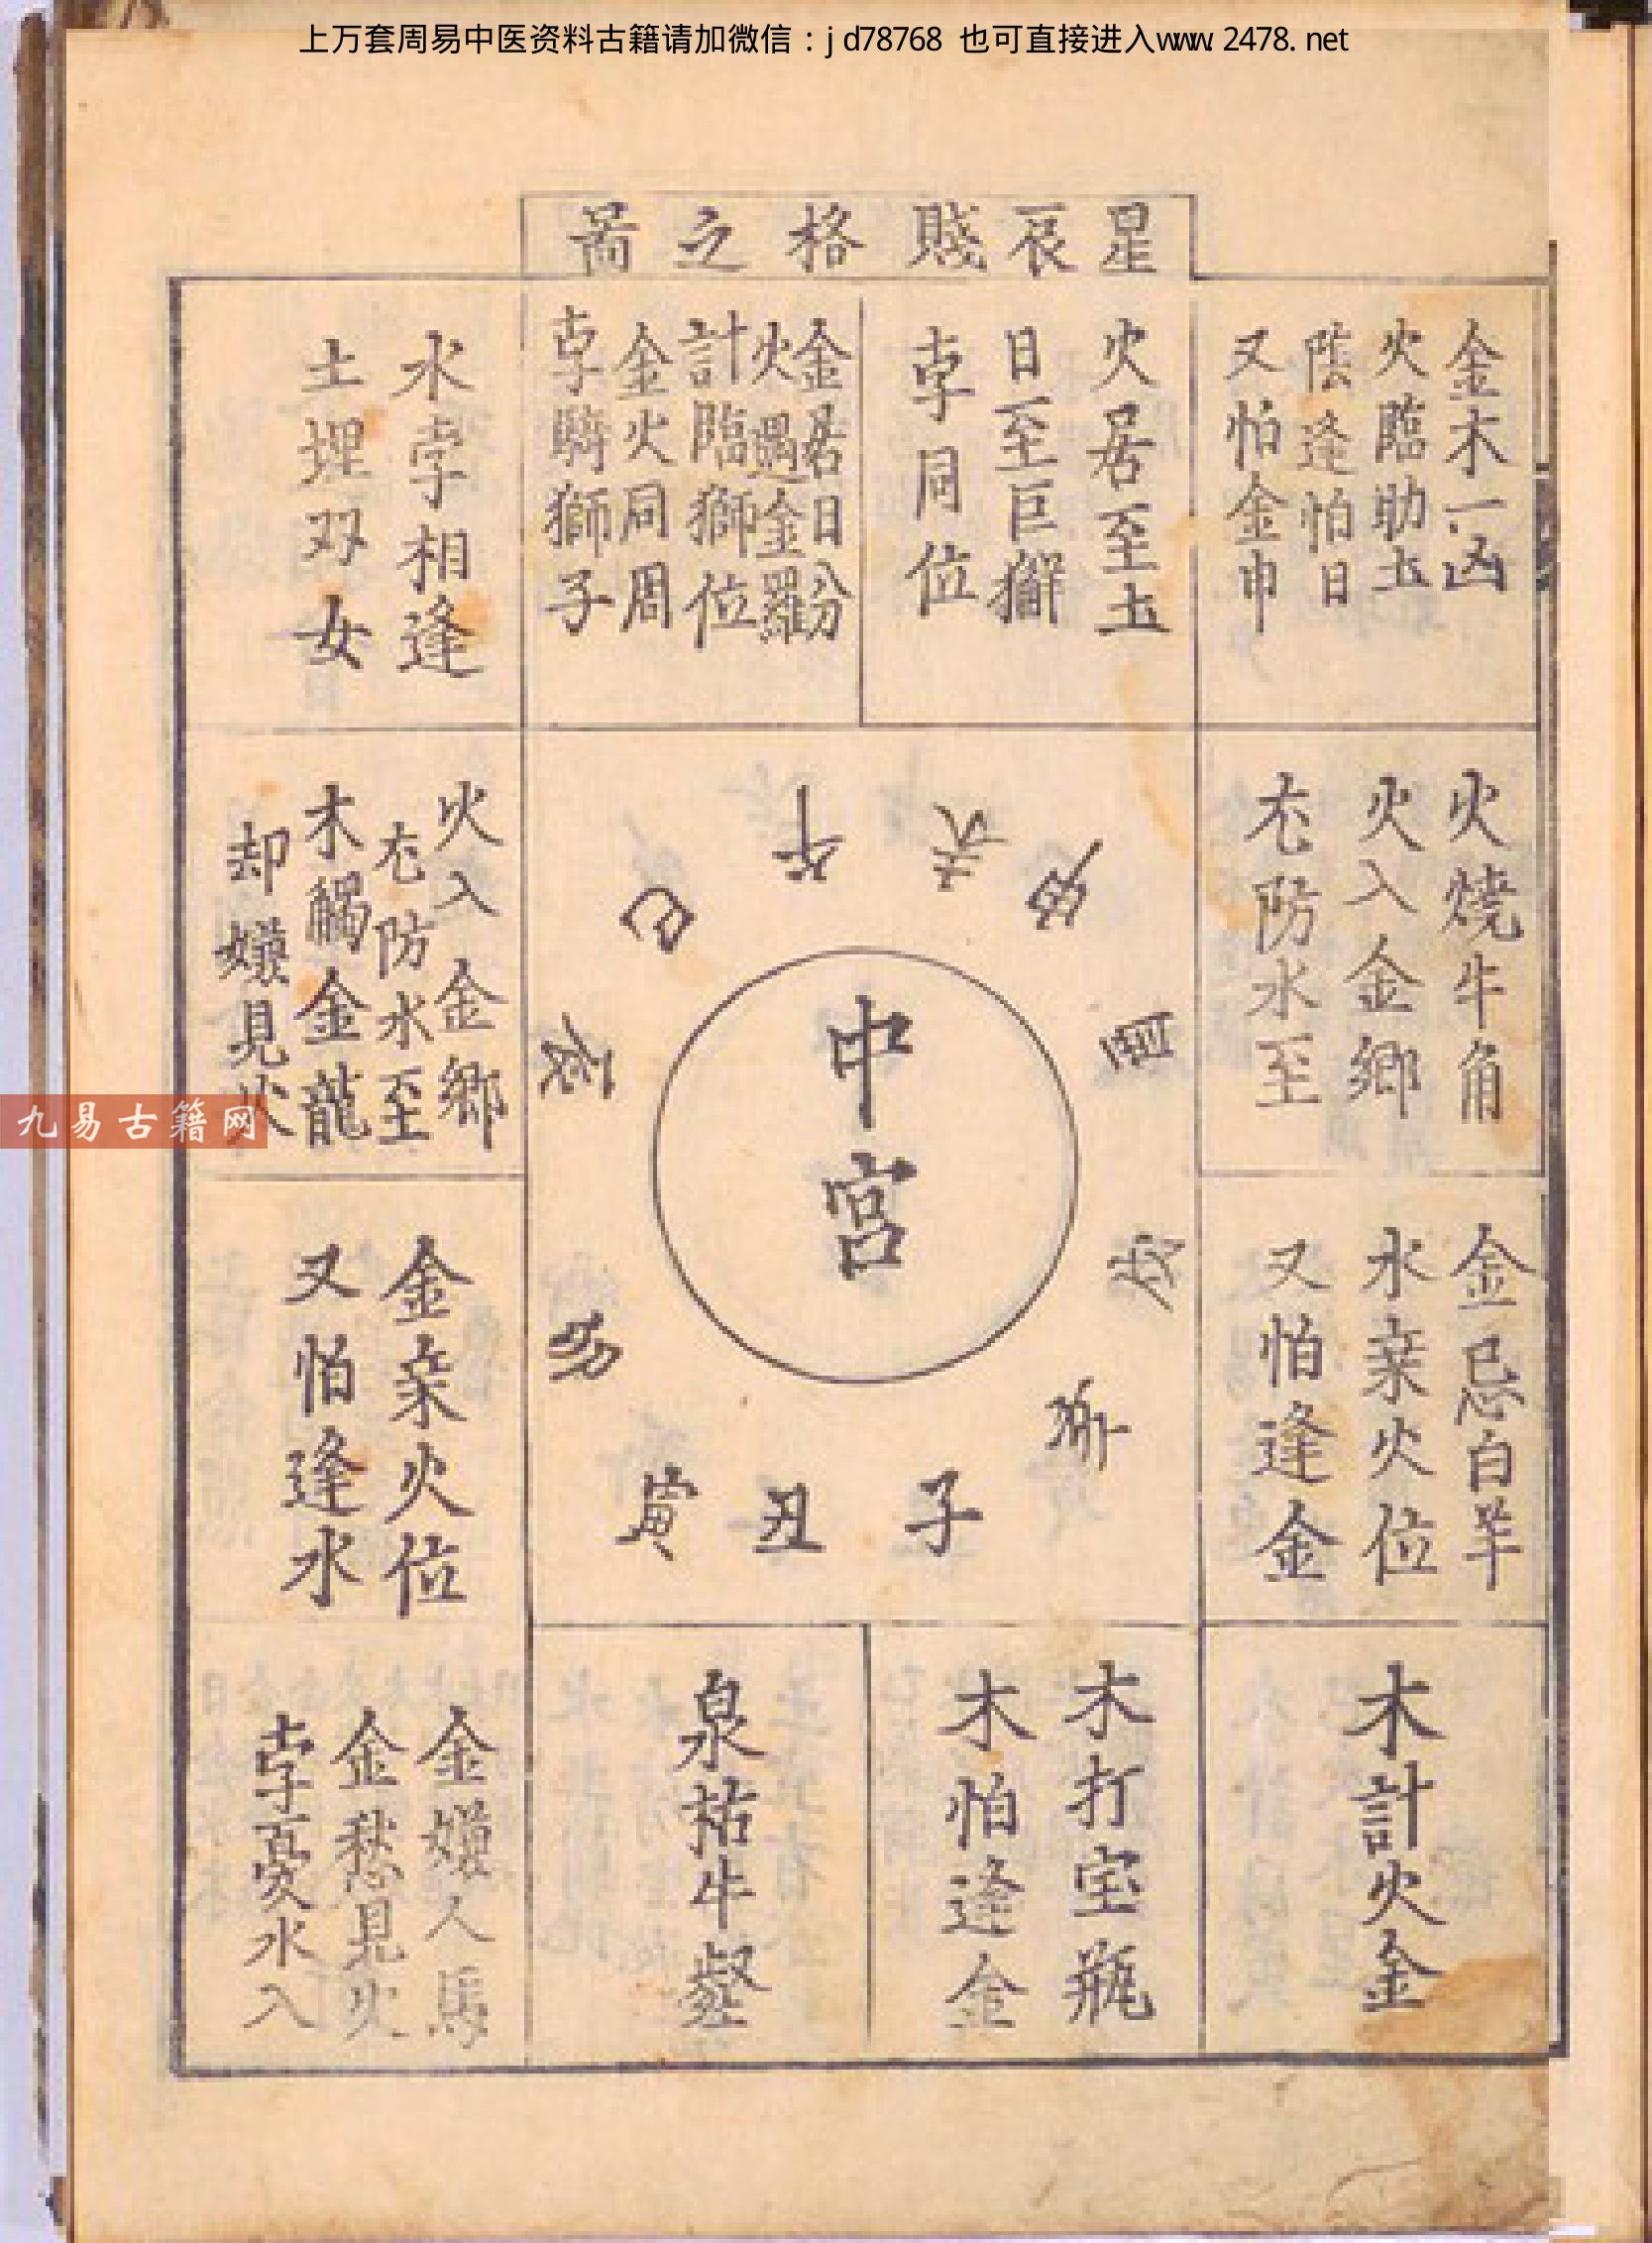 上万套周易中医资料古籍请加微信：jd78768 也可直接进入www.2478.net
星辰賤格之啚
金木一凶
火臨助土
陰逢怕日
又怕金申
火居至土
日至巨蠏
孛同位
金居日分
火遇金羅
計臨獅位
金火同周
孛騎獅子
水孛相逢
土埋双女
火燒牛角
火入金鄉
木防水至
火入金鄉
木防水至
木觸金龍
却嫌見火
金忌白羊
水棄火位
又怕逢金
金棄火位
又怕逢水
木計火金
木打宝瓶
木怕逢金
泉祐牛
金嫌人馬
金愁見火
孛憂水入
中宮
子
丑
寅
卯
辰
巳
午
未
申
酉
戌
亥
九易古籍网